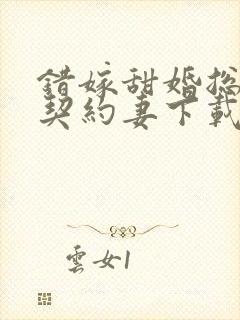 錯嫁甜婚總
契約妻下載
雲女1